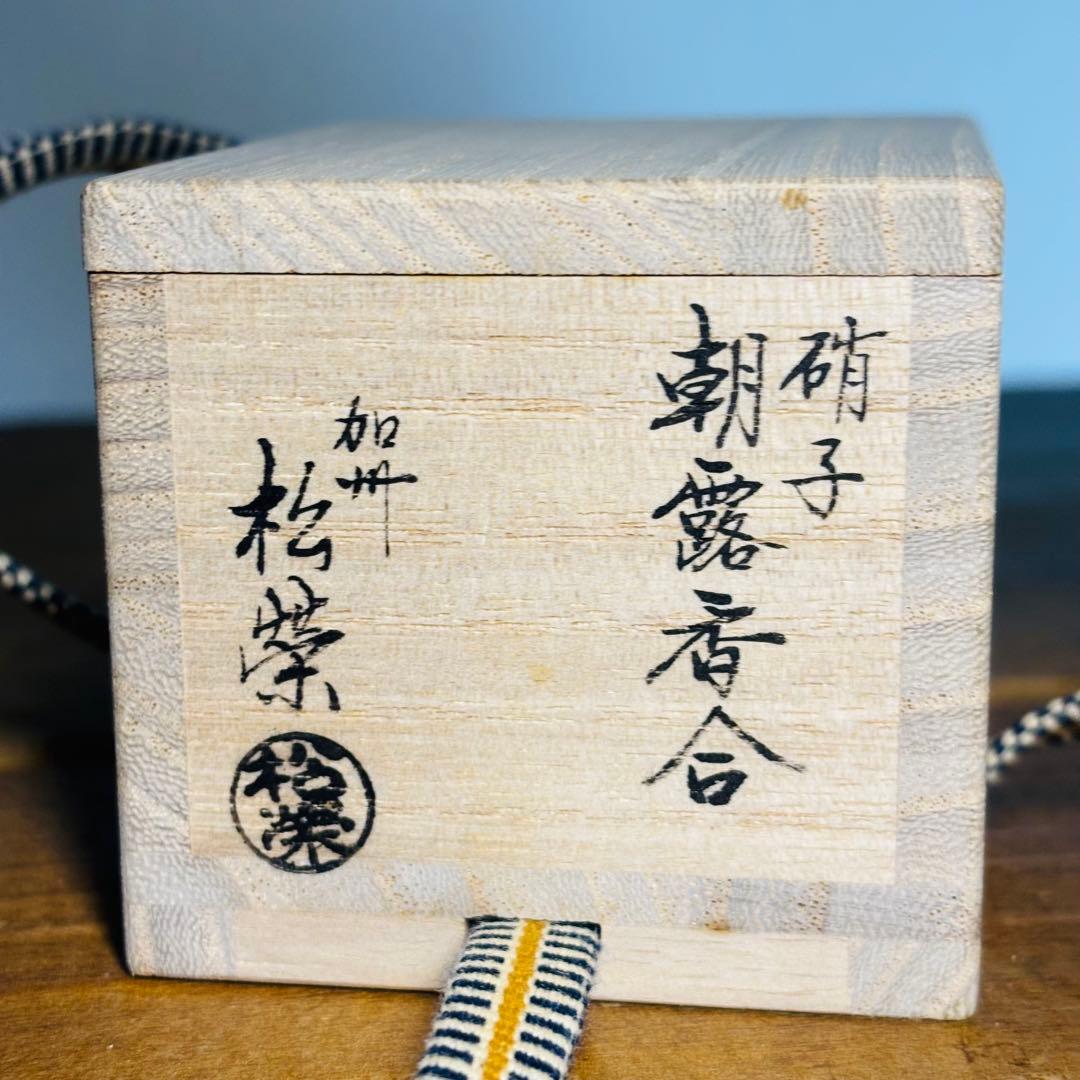 硝子
朝露香合
加州
松栄
松栄